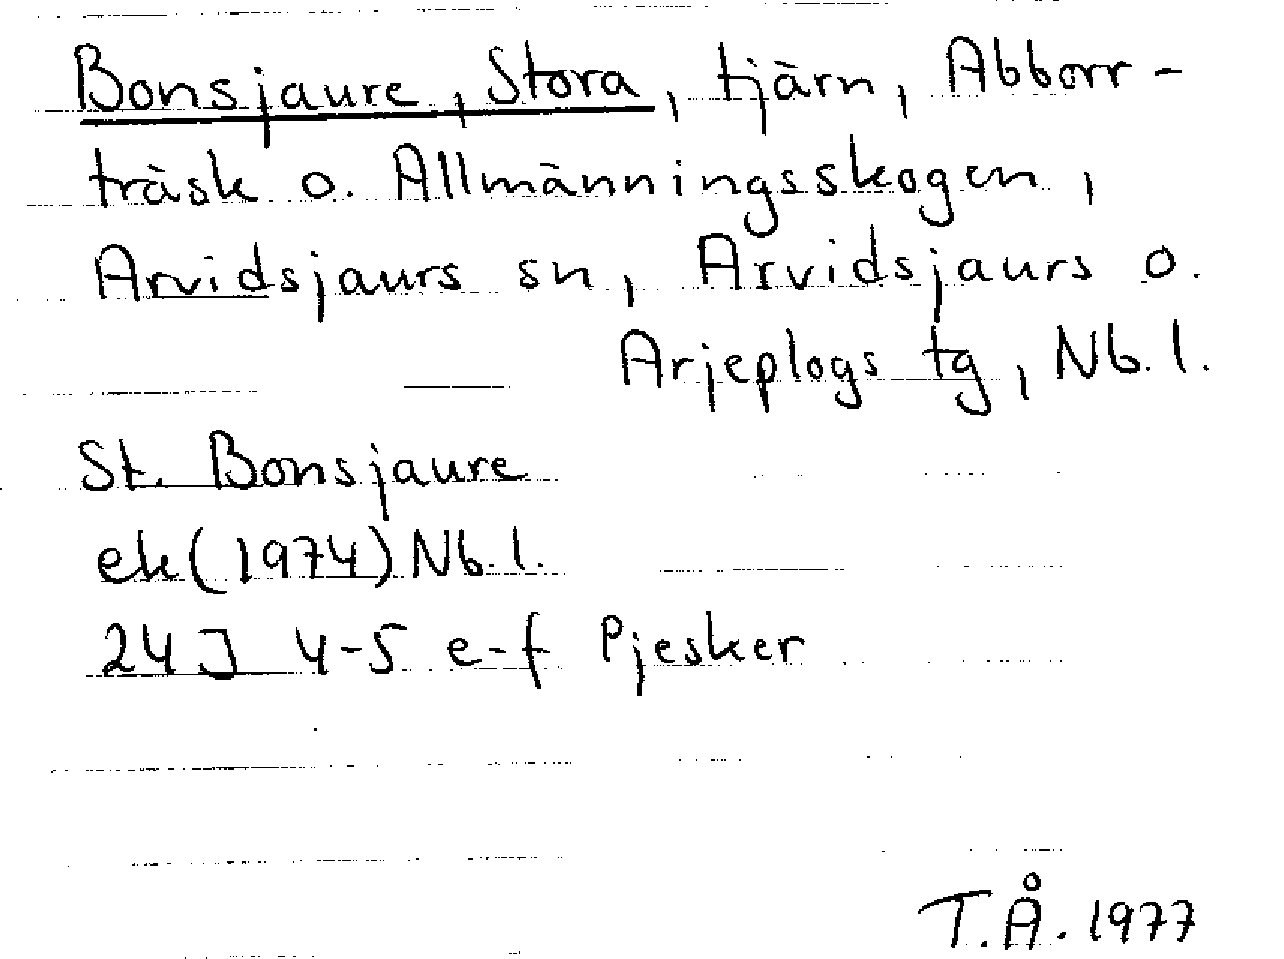 Bonsjaure, Stora, tjärn, Abborr-
träsk o. Allmänningsskogen,
Arvidsjaurs sn, Arvidsjaurs o.
Arjeplogs tg, Nb. l.
St. Bonsjaure
ek (1974) Nb. l.
24 J 4-5 e-f Pjesker
T.Å. 1977